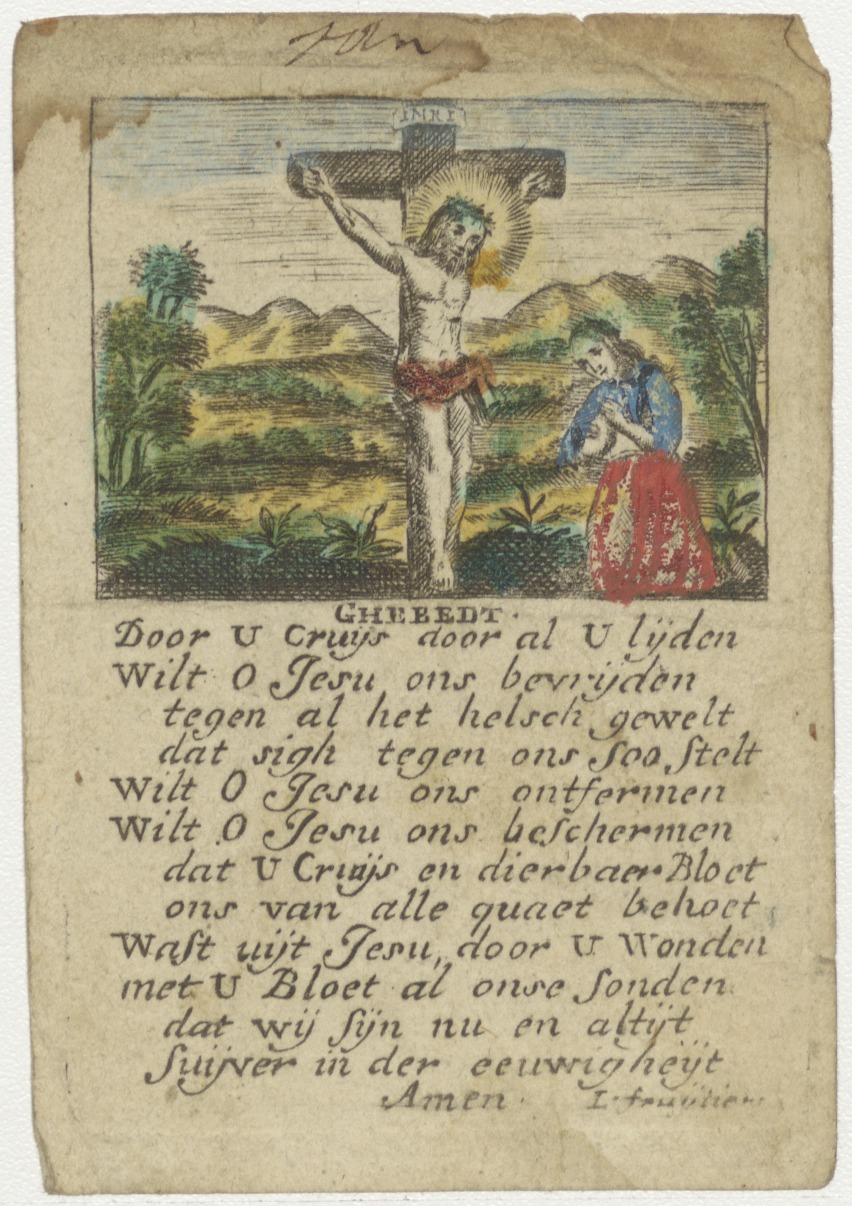 Jan
INRI
GHEBEDT.
Door U Cruijs door al U lijden
Wilt O Jesu ons bevrijden
tegen al het helsch gewelt
dat sigh tegen ons soo stelt
Wilt O Jesu ons ontfermen
Wilt O Jesu ons beschermen
dat U Cruijs en dierbaer Bloet
ons van alle quaet behoet
Wast uijt Jesu, door U Wonden
met U Bloet al onse sonden
dat wij sijn nu en altijt
suijver in der eeuwigheijt
Amen.